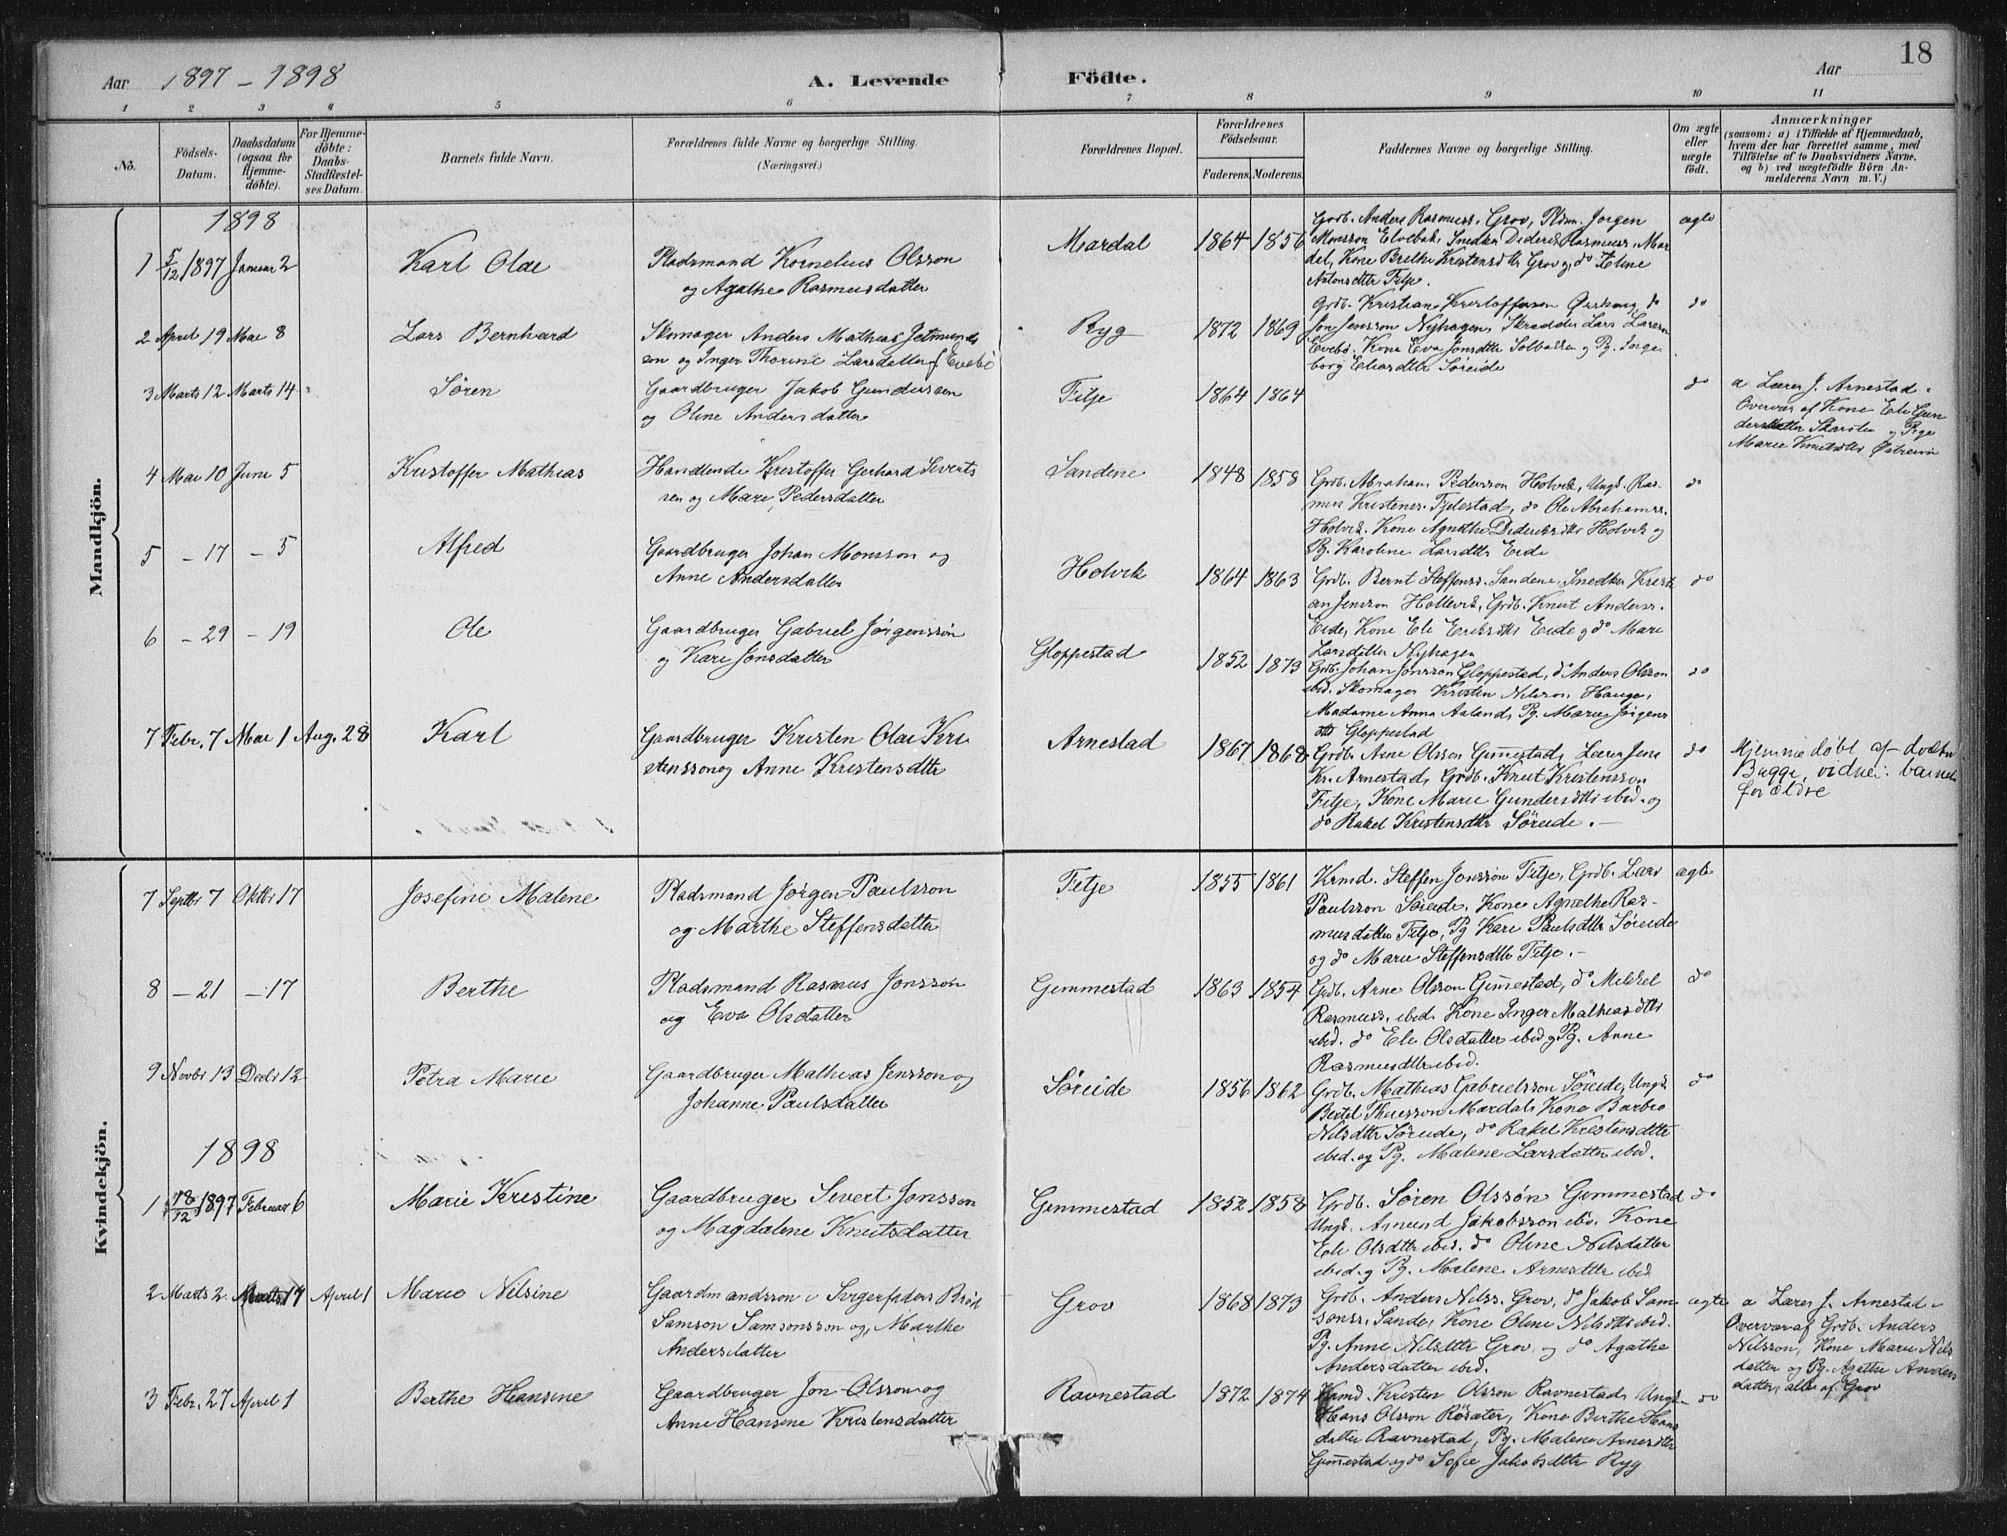 18
Aar 1897 - 1898 A. Levende Födte. Aar
1 2 3 4 5 6 7 8 9 10 11
No.
Födsels-
Datum.
Daabsdatum
(ogsaa for
Hjemme-
döbte).
For Hjemme-
döbte:
Daabs-
Stadfæstel-
ses Datum.
Barnets fulde Navn.
Forældrenes fulde Navne og borgerlige Stilling.
(Næringsvei.)
Forældrenes Bopæl.
Forældrenes
Födselsaar.
Faderens. Moderens.
Faddernes Navne og borgerlige Stilling.
Om ægte
eller
uægte
födt.
Anmærkninger
(saasom: a) i Tilfælde af Hjemmedaab,
hvem der har forrettet samme, med
Tilföielse af to Daabsvidners Navne,
og b) ved uægtefödte Börn An-
melderens Navn m. V.)
Mandkjön.
1898
1 5/12 1897 Januar 2 Karl Olai
Pladsmand Kornelius Olsson
og Agathe Rasmusdatter
Mardal 1864 1856
Grdb. Anders Rasmuss. Grov, Pldm. Jørgen
Monsson Elvebak, Snedker Diderik Rasmuss. Mar
dal, Kone Brethe Kristensdtr Grov og do Eline
Antonsdtr Fitje.
ægte
2 April 19 Mai 8 Lars Bernhard
Skomager Anders Mathias Jetmunds
søn og Inger Thorine Larsdatter f Evebø
Ryg 1872 1869
Grdb. Kristian Kristoffersson do
Jon Jensson Nyhagen, Skrædder Lars Larsson
Evebø. Kone Eva Jonsdtr Solbakken og Pg. Inge
borg Eliasdtr Søreide
do
3 Marts 12 Marts 14 Søren
Gaardbruger Jakob Gundersen
og Oline Andersdatter
Fitje 1864 1864
do
a Lærer J. Arnestad i
Overvær af Kone Eli Gun
dersdatter og Pige
Marie Knutsdtr
4 Mai 10 Juni 5 Kristoffer Mathias
Handlende Kristoffer Gerhard Severts
sen og Mari Pedersdatter
Sandene 1848 1858
Grdb. Abraham Pedersson Holvik, Ungk. Ras-
mus Kristens. Fjelestad, do Ole Abrahamss.
Holvik. Kone Agnethe Dideriksdtr Holvik og
Pg. Karoline Larsdtr Eide
do
5 - 17 - 5 Alfred
Gaardbruger Johan Monsson og
Anne Andersdatter
Holvik 1864 1863
Grdb. Bernt Steffenss. Sandene, Snedker Kristi
an Jensson Holtevik, Grdb. Knut Anderss.
Eide, Kone Eli Eriksdtr Eide og do Mari
Larsdatter Nyhagen
do
6 - 29 - 19 Ole
Gaardbruger Gabriel Jørgenssøn
og Kari Jonsdatter
Gloppestad 1852 1873
Grdb. Johan Jonsson Gloppestad, do Anders Olsson
ibid. Skomager Kristen Nilsson Hauge,
Madame Anna Aaland, Pg. Marie Jørgens
dtr Gloppestad
do
7 Febr. 7 Mai 1 Aug. 28 Karl
Gaardbruger Kristen Olai Kri
stensson og Anne Kristensdtr
Arnestad 1867 1868
Grdb. Arne Olsson Gimmestad, Lærer Jens
Kr. Arnestad, Grdb. Knut Kristensson
Fitje, Kone Marie Gundersdtr ibid. og
do Rakel Kristensdtr Søreide. -
do
Hjemmedøbt af doktor
Bugge, vidner: barnets
forældre
Kvindekjön.
7 Septbr 7 Oktbr 17 Josefine Malene
Pladsmand Jørgen Paulsson
og Marthe Steffensdatter
Fitje 1855 1861
Krmd. Steffen Jonsson Fitje, Grdb. Lars
Paulsson Søreide, Kone Agnethe Ras-
musdatter Fitje, Pg Kari Paulsdtr Søreide
og do Marie Steffensdtr Fitje. -
ægte
8 - 21 - 17 Berthe
Pladsmand Rasmus Jonssøn
og Eva Olsdatter
Gemmestad 1863 1854
Grdb. Arne Olsson Gimmestad, do Mikkel
Rasmuss. ibid. Kone Inger Mathiasdtr
ibid. do Eli Olsdatter ibid og Pg. Anne
Rasmusdtr ibid.
do
9 Novbr 13 Decbr 12 Petra Marie
Gaardbruger Mathias Jensson og
Johanne Paulsdatter
Søreide 1856 1862
Grdb. Mathias Gabrielsson Søreide, Ungk
Bertel Mardal, Kone Barbro
Nilsdtr Søreide, do Rakel Kristensdtr
ibid. og Pg. Malene Larsdatter ibid.
do
1898
1 18/12 1897 Februar 6 Marie Kristine
Gaardbruger Severt Jonsson
og Magdalene Knutsdatter
Gemmestad 1852 1858
Grdb. Søren Olssøn Gemmestad
Ungk. Amund Jakobsson ibid. Kone
Eli Olsdtr ibid. do Oline Nilsdatter
ibid. og Pg. Malene Arnesdtr ibid
do
2 Marts 2 Marts 14 April 1 Marie Nilsine
Gaardmandssøn i Svigerfaders Brød
Samson Samsonsson og Marthe
Andersdatter
Grov 1868 1873
Grdb. Anders Nilss. Grov, do Jakob Sam
sonss. Sande, Kone Oline Nilsdtr ibid.
Pg. Anne Nilsdtr Grov og do Agathe
Andersdatter ibid.
ægte
a Lærer J. Arnestad i
Overvær af Grdb. Anders
Nilsson, Kone Marie Nils
datter og Pg. Agathe Anders
datter, alle af Grov
3 Febr. 27 April 1 Berthe Hansine
Gaardbruger Jon Olsson og
Anne Hansine Kristensdatter
Ravnestad 1872 1874
Kristen Olsson Ravnestad, Ungk.
Hans Olsson Røsæter, Kone Berthe Hans
datter Ravnestad, Pg. Malene Arnesdtr
Gimmestad og do Sofie Jakobsdtr Ryg
do